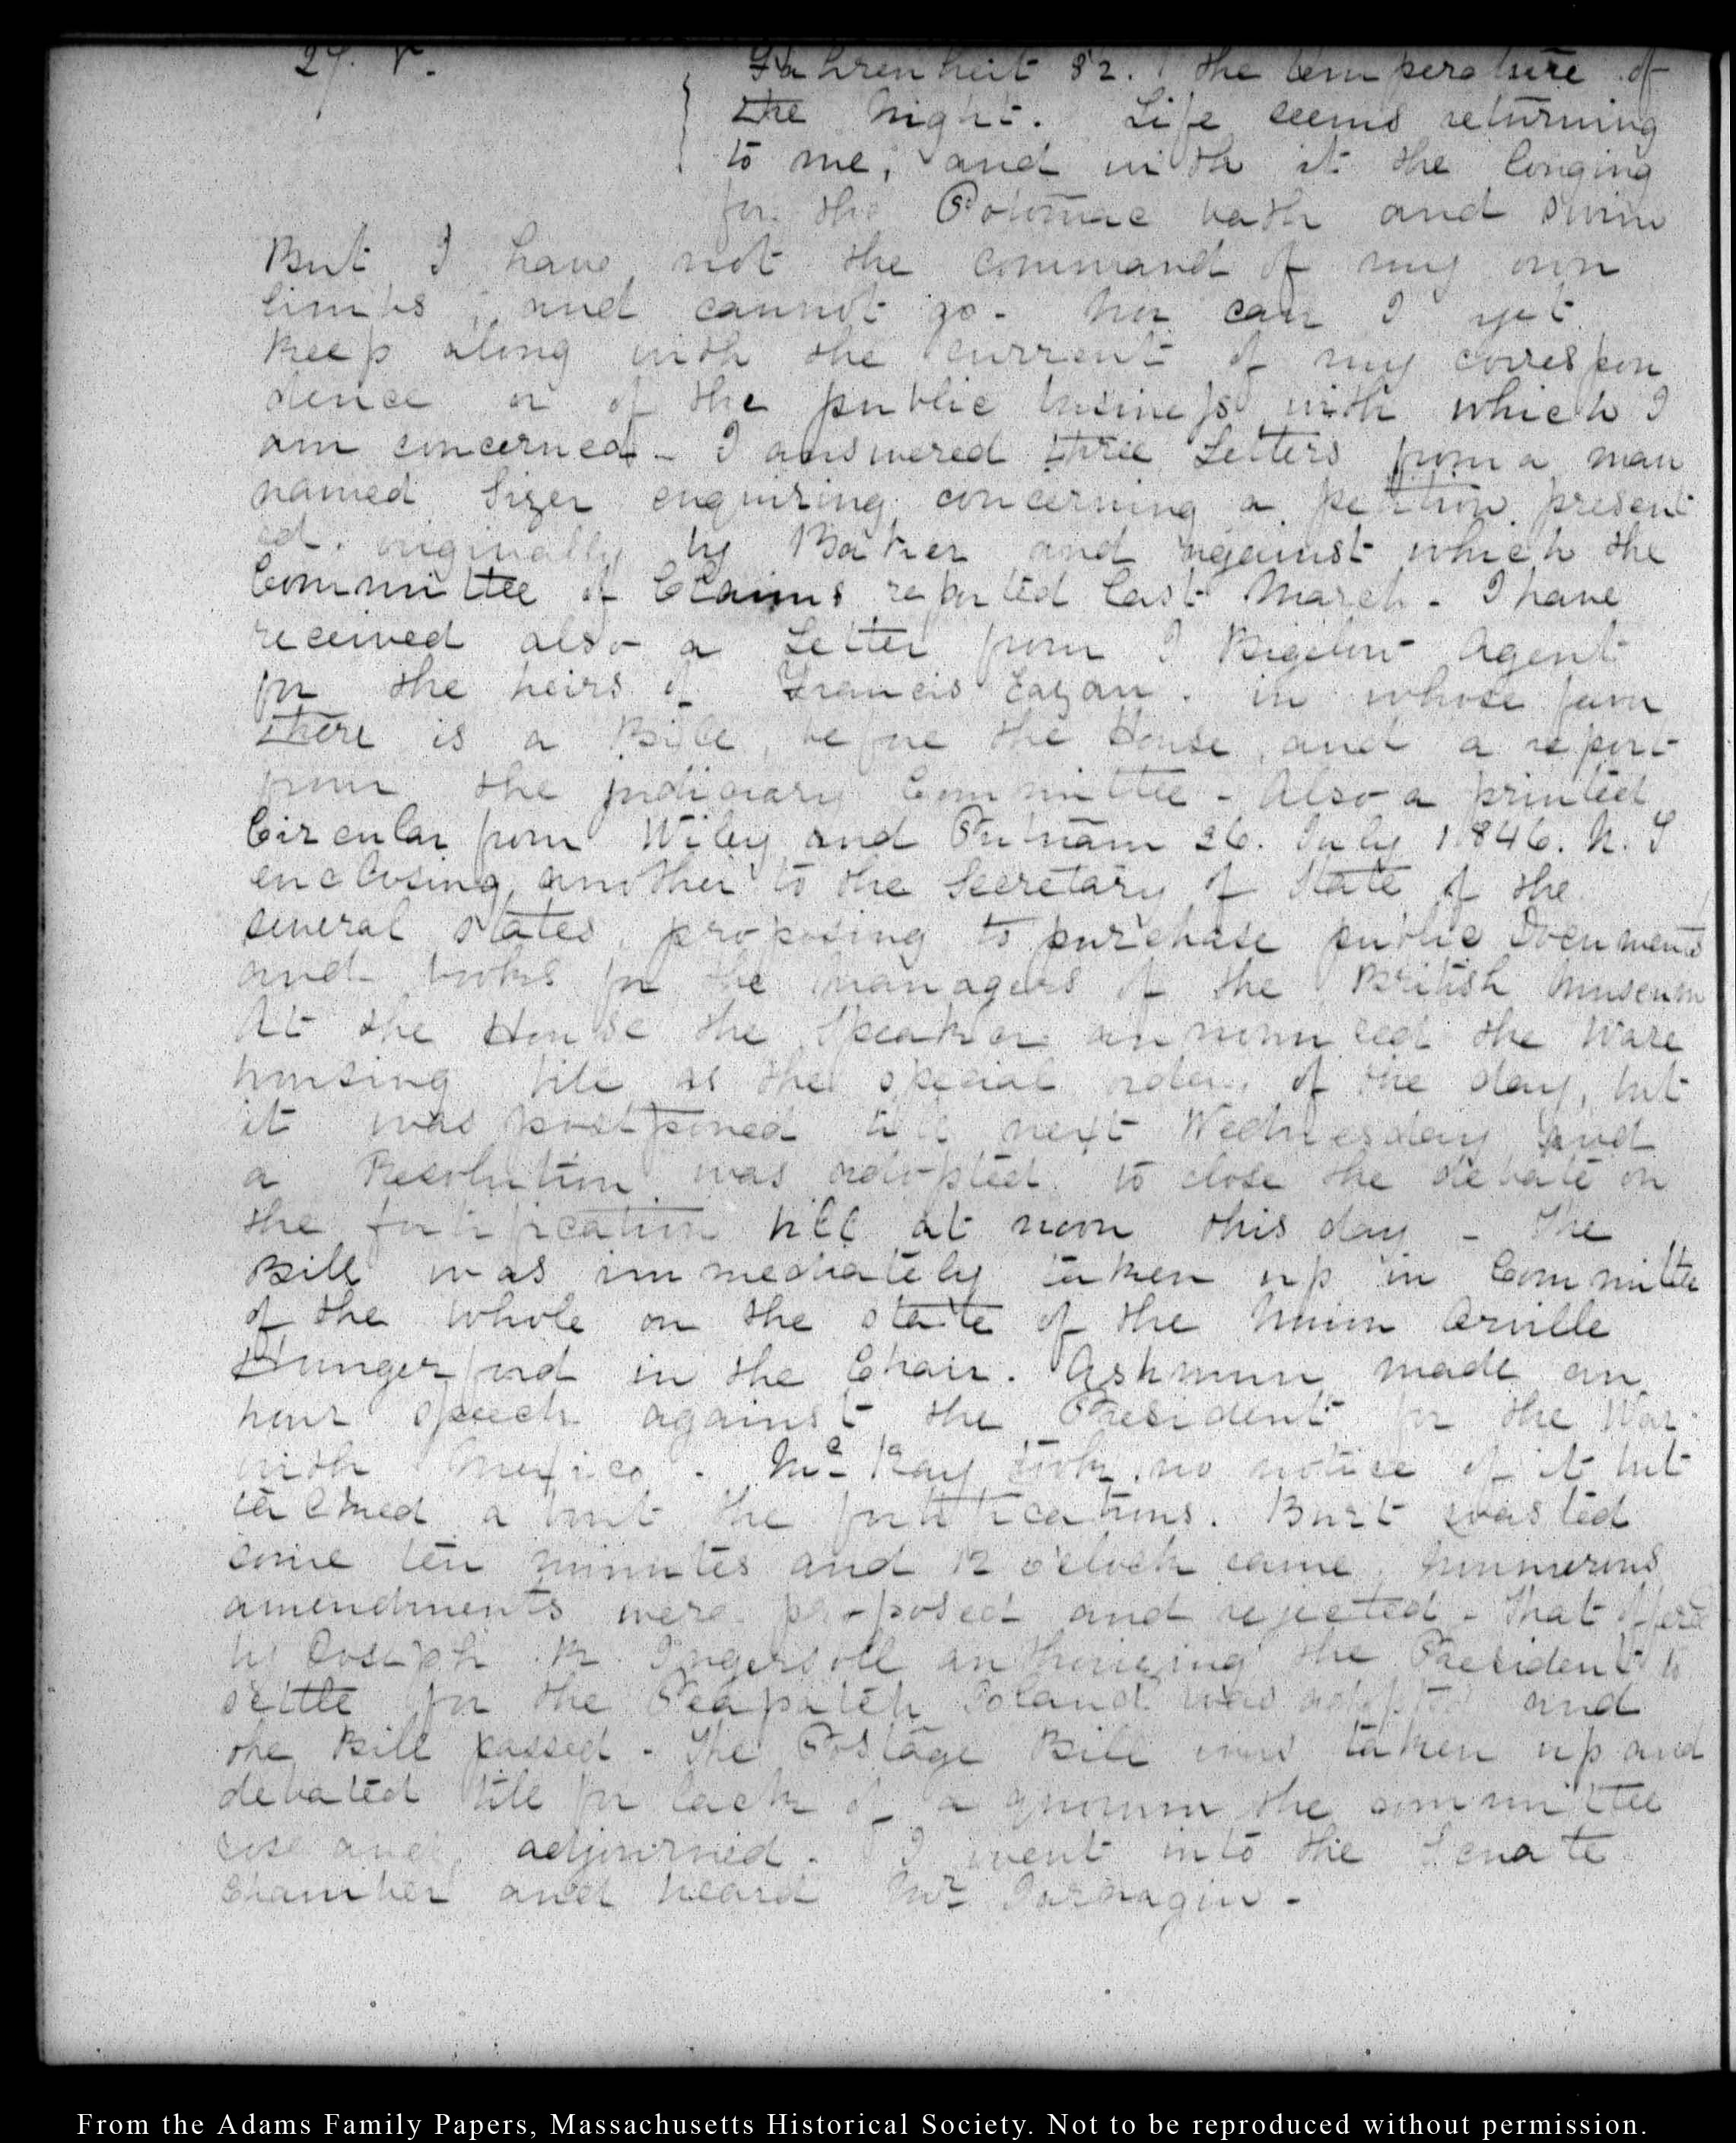 27. V.
Fahrenheit 82. the temperature of
the night. Life seems returning
to me, and with it the longing
for the Potomac bath and swim
But I have not the command of my own
limbs, and cannot go - Nor can I yet
keep along with the current of my correspon
dence or of the public business with which I
am concerned - I answered three Letters from a man
named Sizer enquiring concerning a petition present
ed, originally by Baker and against which the
Committee of Claims reported last March - I have
received also a Letter from I Bigelow Agent
for the heirs of Francis Cazeau. in whose favor
there is a Bill, before the House, and a report
from the judiciary Committee - Also a printed
Circular from Wiley and Putnam 26. July 1846. N. Y
enclosing another to the Secretary of State of the
several states, proposing to purchase public Documents
and books for the managers of the British Museum
At the House the Speaker announced the Ware
housing bill as the special order of the day, but
it was postponed till next Wednesday and
a Resolution was adopted to close the debate on
the fortification bill at noon this day - The
Bill was immediately taken up in Committee
of the whole on the state of the Union Orville
Hungerford in the Chair. Ashmun made an
hour speech against the President for the War
with Mexico. McKay took no notice of it but
talked about the fortifications. Burt wasted
some ten minutes and 12 o'clock came. Numerous
amendments were proposed and rejected - That offered
by Joseph R. Ingersoll authorizing the President to
settle for the Peapatch Island was adopted and
the Bill passed - The Postage Bill was taken up and
debated till for lack of a quorum the committee
rose and adjourned. I went into the Senate
Chamber and heard Mr Jarnagin -
From the Adams Family Papers, Massachusetts Historical Society. Not to be reproduced without permission.